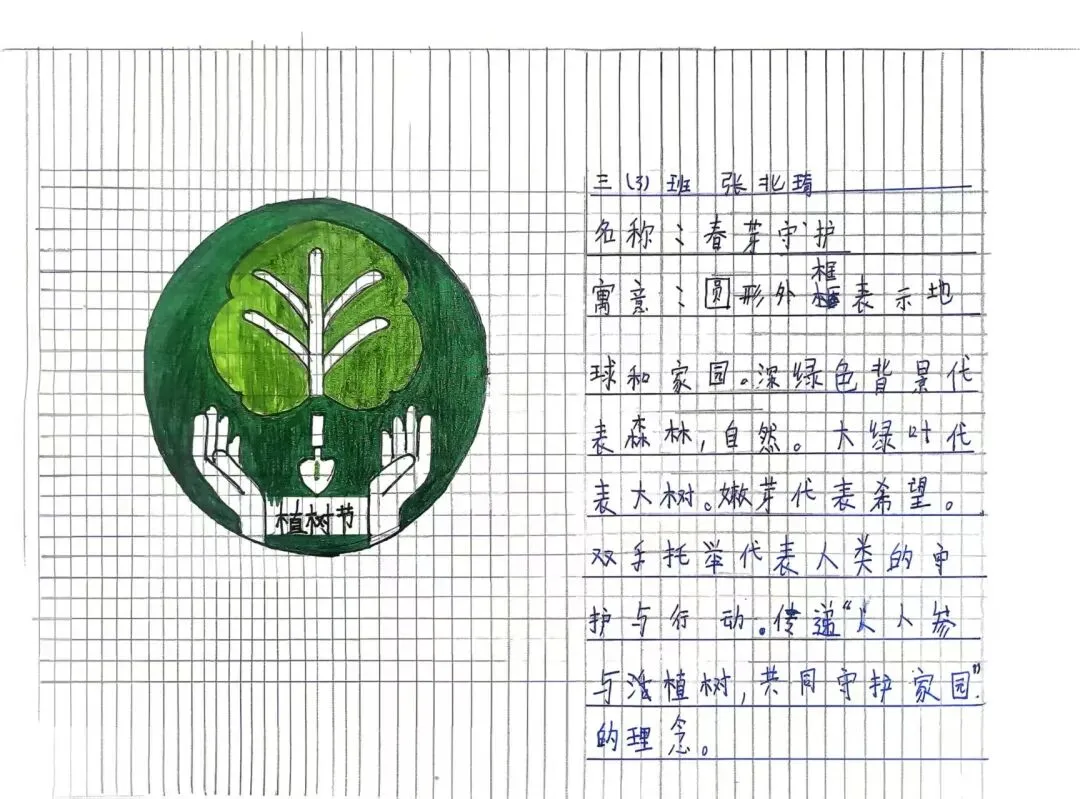 植树节
三(3)班 张北琦
名称：春芽守护
寓意：圆形外框表示地
球和家园。深绿色背景代
表森林，自然。大绿叶代
表大树。嫩芽代表希望。
双手托举代表人类的守
护与行动。传递“人人参
与植树，共同守护家园”
的理念。